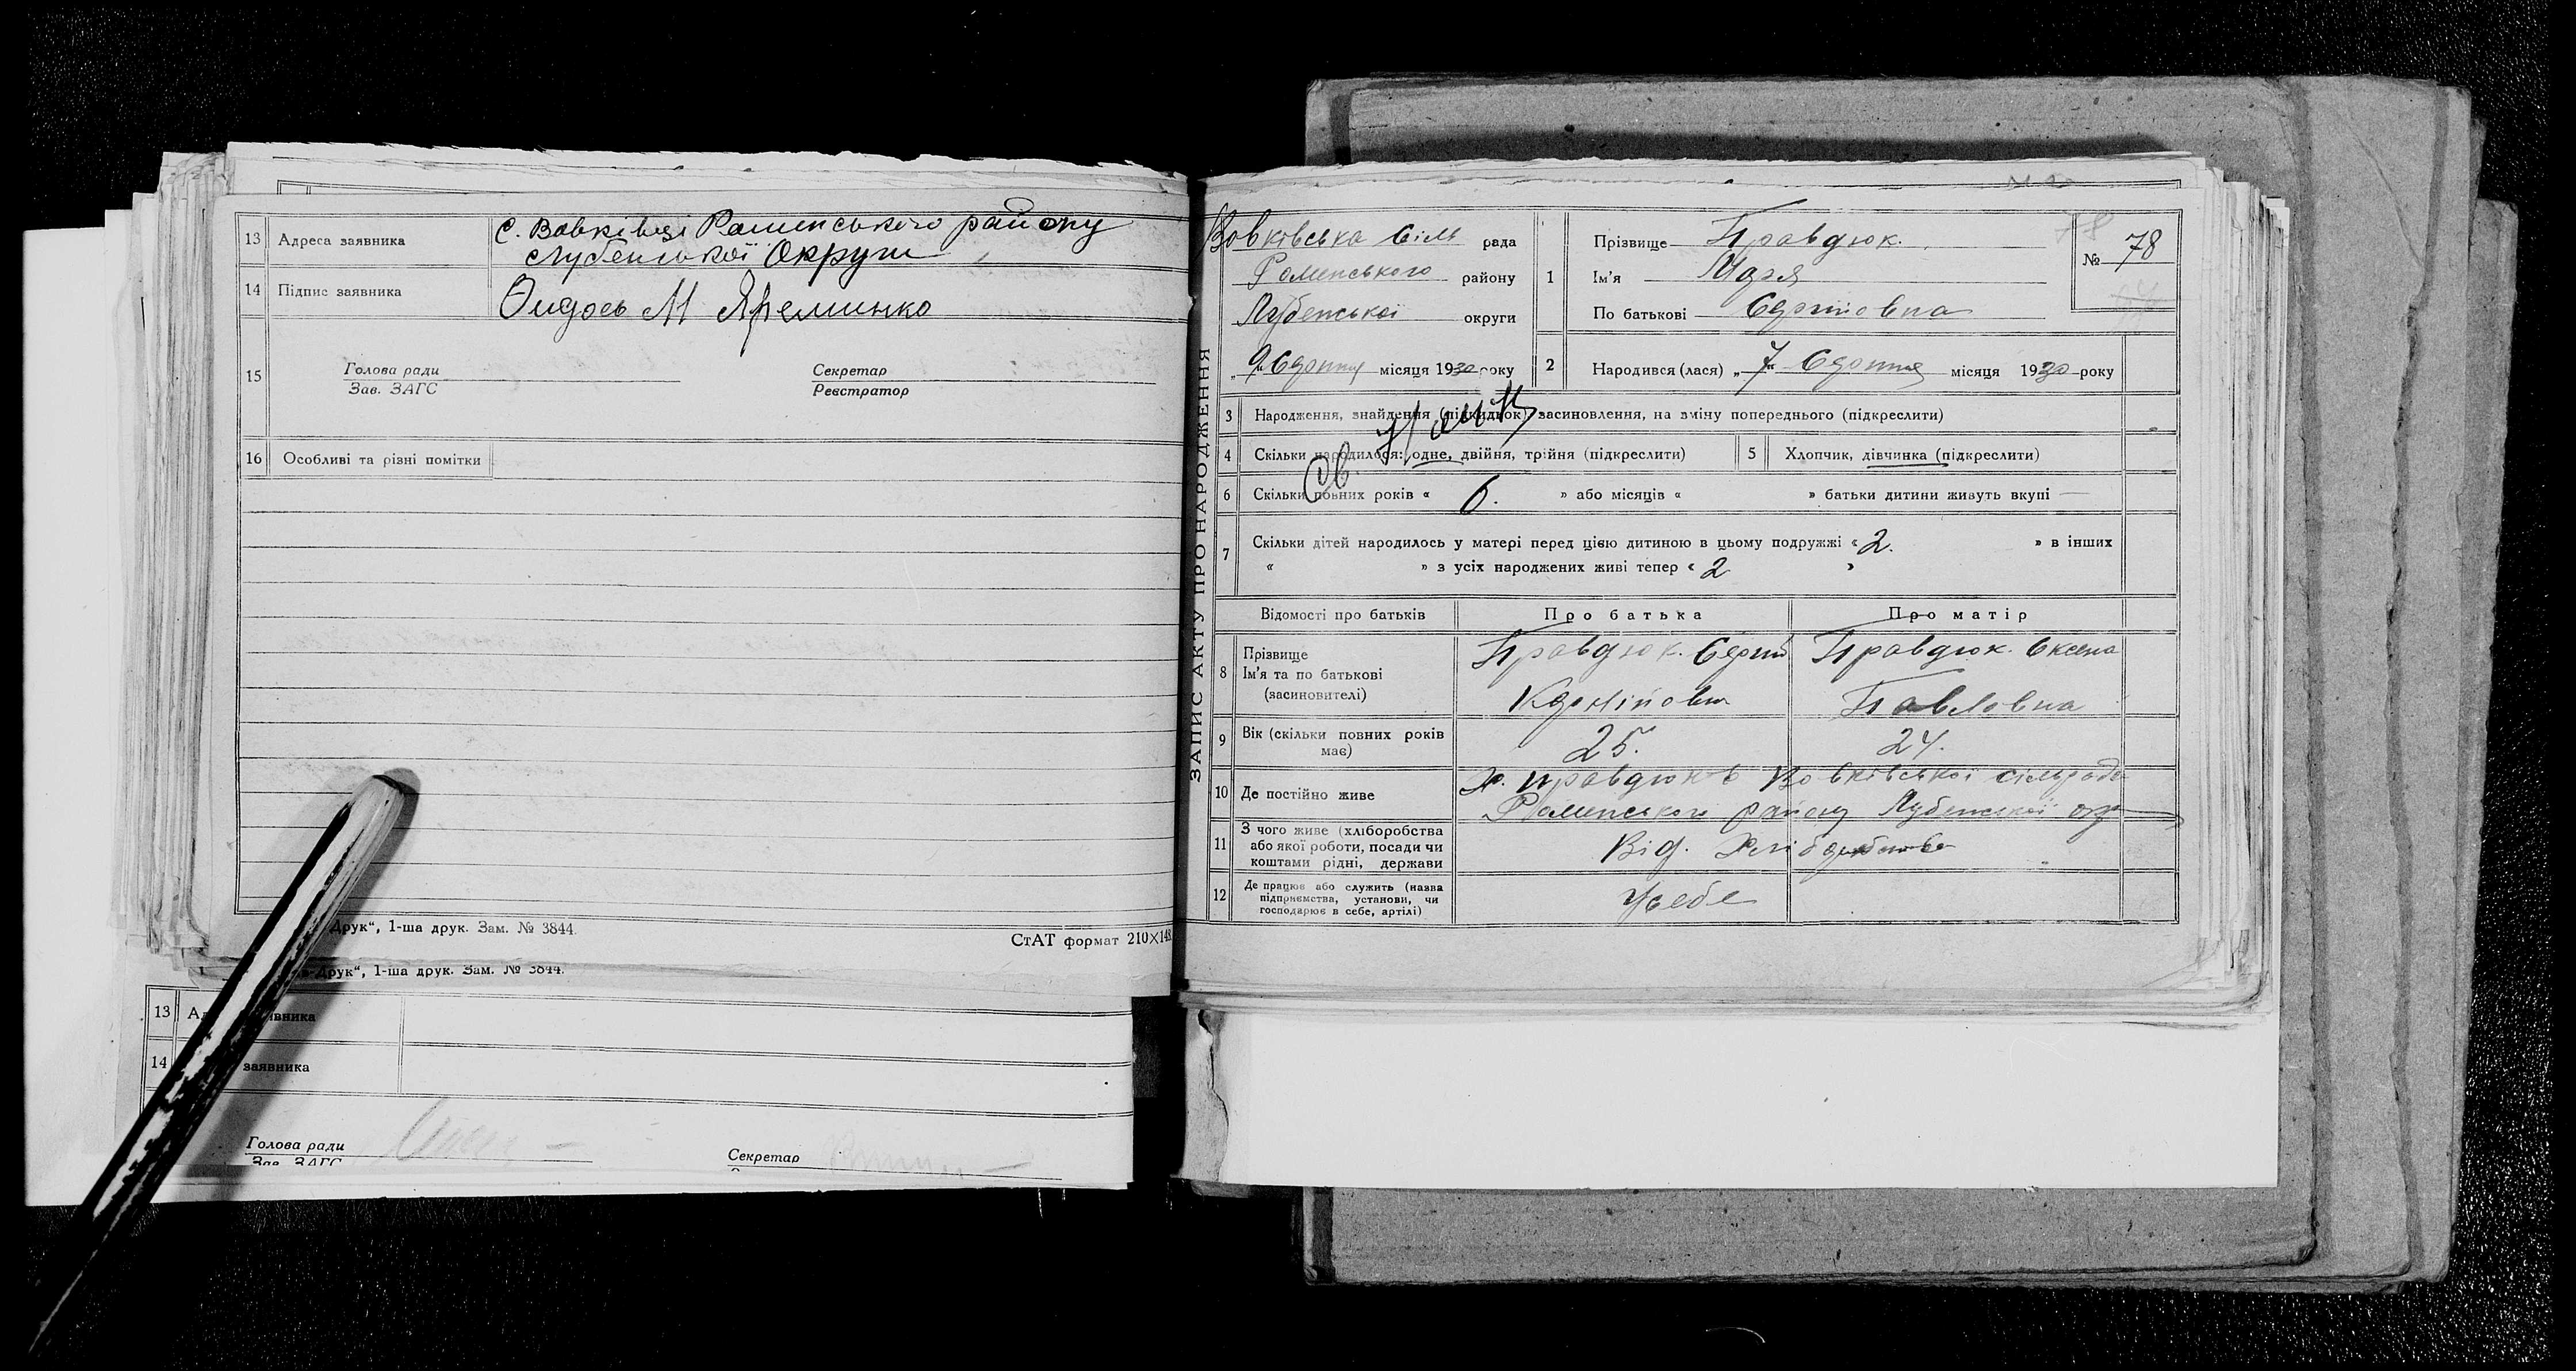 13 Адреса заявника с. Вовківці Роменського району
Лубенської Округи
14 Підпис заявника М Яреминко
15 Голова ради Секретар
Зав. ЗАГС Реєстратор
16 Особливі та різні помітки
Друк“, 1-ша друк. Зам. № 3844.
СтАТ формат 210×148
Друк“, 1-ша друк. Зам. № 3844.
13
14 заявника
Голова ради Секретар
Зав. ЗАГС
ЗАПИС АКТУ ПРО НАРОДЖЕННЯ
Вовківська Сіль рада
Роменського району
Лубенської округи
„9“ Серпня місяця 1930 року
1 Прізвище Правдюк.
Ім'я Маря
По батькові Сергіїовна
78
№ 78
2 Народився (лася) „7“ Серпня місяця 1930 року
3 Народження, знайдення (підкидьок) засиновлення, на зміну попереднього (підкреслити)
4 Скільки народилося: одне, двійня, трійня (підкреслити) 5 Хлопчик, дівчинка (підкреслити)
6 Скільки повних років « 6. » або місяців « » батьки дитини живуть вкупі
7 Скільки дітей народилось у матері перед цією дитиною в цьому подружжі « 2. » в інших
« » з усіх народжених живі тепер « 2 »
Відомості про батьків Про батька Про матір
8 Прізвище
Ім'я та по батькові
(засиновителі)
Правдюк. Сергій
Правдюк. Оксена
Павловна
9 Вік (скільки повних років
має)
25. 24.
10 Де постійно живе Х. Правдюков Вовківської сільради
Роменського району Лубенської окр
11 З чого живе (хліборобства
або якої роботи, посади чи
коштами рідні, держави
Від. Хліборобства
12 Де працює або служить (назва
підприємства, установи, чи
господарює в себе, артілі)
Усебе